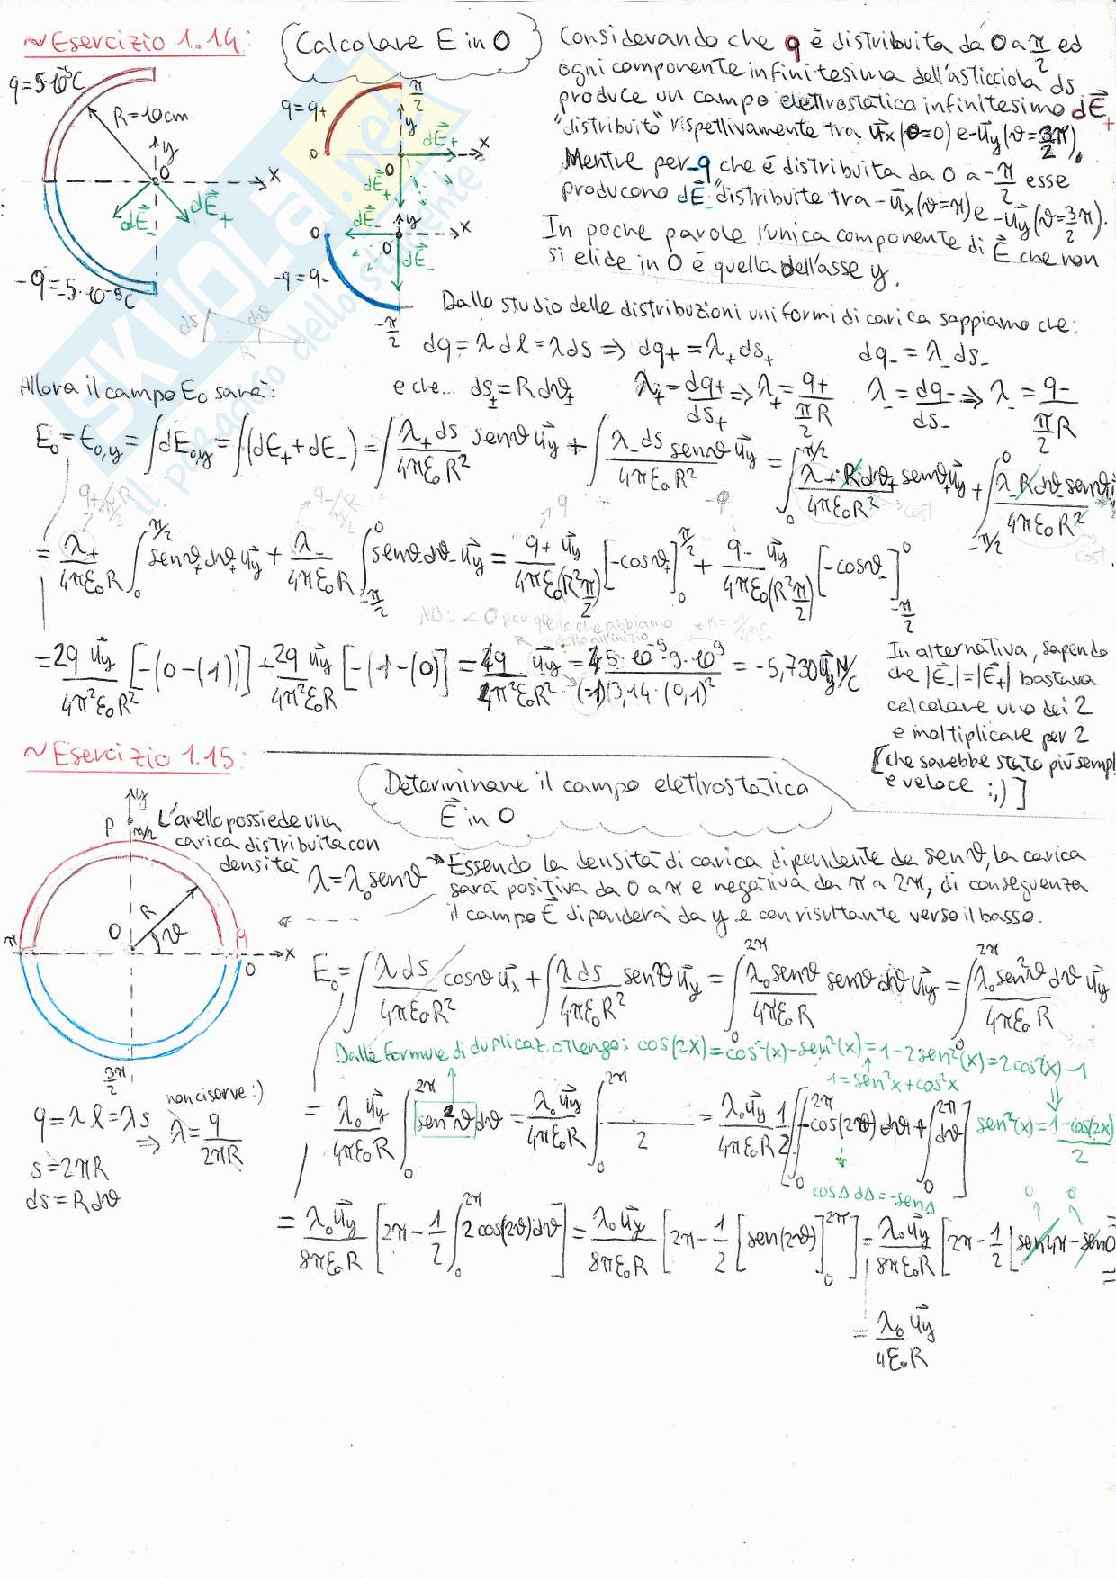 ~Esercizio 1.14:
Calcolare E in O
q=5·10⁻⁹C
R=10cm
y
O
x
dE⃗₋
dE⃗₊
-q=-5·10⁻⁹C
ds
dϑ
R
q=q₊
π/2
y
0
O
dE⃗₊
x
dE⃗₋
y
0
O
x
dE⃗₋
-q=q₋
-π/2
Considerando che q è distribuita da 0 a π/2 ed
ogni componente infinitesima dell'asticciola ds
produce un campo elettrostatico infinitesimo dE⃗₊
"distribuito" rispettivamente tra u⃗x(ϑ=0) e -u⃗y(ϑ=3π/2).
Mentre per -q che è distribuita da 0 a -π/2 esse
producono dE⃗₋ "distribuite tra -u⃗x(ϑ=π) e -u⃗y(ϑ=3/2π).
In poche parole l'unica componente di E⃗ che non
si elide in O è quella dell'asse y.
Dallo studio delle distribuzioni uniformi di carica sappiamo che:
dq=λdl=λds ⇒ dq₊=λ₊ds₊ dq₋=λ₋ds₋
Allora il campo E₀ sarà: e che... ds±=Rdϑ± λ₊=dq₊/ds₊ ⇒ λ₊=q₊/(π/2 R) λ₋=dq₋/ds₋ ⇒ λ₋=q₋/(π/2 R)
E₀=E₀,y=∫dE₀,y=∫(dE₊+dE₋)=∫λ₊ds/4πε₀R² senϑu⃗y+∫λ₋ds/4πε₀R² senϑu⃗y=∫₀^π/2 λ₊Rdϑ₊/4πε₀R² senϑ₊u⃗y+∫₋π/2^0 λ₋Rdϑ₋senϑ/4πε₀R²
=λ₊/4πε₀R ∫₀^π/2 senϑ₊dϑ₊u⃗y+λ₋/4πε₀R ∫₋π/2^0 senϑ₋dϑ₋u⃗y=q₊u⃗y/4πε₀(R²π/2) [-cosϑ₊]₀^π/2+q₋u⃗y/4πε₀(R²π/2) [-cosϑ₋]₋π/2^0
=2qu⃗y/4π²ε₀R² [-(0-(1))]-2qu⃗y/4π²ε₀R [-(1-(0)]=4q/4π²ε₀R² u⃗y=4·5·10⁻⁹·9·10⁹/(-1)(3,14·(0,1)²=-5,730u⃗yN/C
In alternativa, sapendo
che |E⃗₋|=|E⃗₊| bastava
calcolare uno dei 2
e moltiplicare per 2
[che sarebbe stato più sempl
e veloce :,)]
~Esercizio 1.15:
Determinare il campo elettrostatico
E⃗ in O
y
P
π/2
L'anello possiede una
carica distribuita con
densità λ=λ₀senϑ
R
ϑ
O
π
0
x
3π/2
→Essendo la densità di carica dipendente da senϑ, la carica
sarà positiva da 0 a π e negativa da π a 2π, di conseguenza
il campo E⃗ dipenderà da y e con risultante verso il basso.
E₀=∫λds/4πε₀R² cosϑu⃗x+∫λds/4πε₀R² senϑu⃗y=∫₀^2π λ₀senϑ/4πε₀R senϑdϑu⃗y=∫₀^2π λ₀sen²ϑ/4πε₀R dϑu⃗y
Dalle formule di duplicaz. ottengo: cos(2x)=cos²(x)-sen²(x)=1-2sen²(x)=2cos²(x)-1
1=sen²x+cos²x
=λ₀u⃗y/4πε₀R ∫₀^2π sen²ϑdϑ=λ₀u⃗y/4πε₀R ∫₀^2π /2=λ₀u⃗y/4πε₀R 1/2[∫₀^2π -cos(2ϑ)dϑ+∫₀^2π dϑ] sen²(x)=1-cos(2x)/2
cos∆d∆=-sen∆
q=λl=λs
non ci serve :)
⇒ λ=q/2πR
s=2πR
ds=Rdϑ
=λ₀u⃗y/8πε₀R [2π-1/2∫₀^2π 2cos(2ϑ)dϑ]=λ₀u⃗y/8πε₀R [2π-1/2[sen(2ϑ)]₀^2π]=λ₀u⃗y/8πε₀R [2π-1/2[sen4π-sen0
0
0
=
=λ₀u⃗y/4ε₀R
SKUOLA.net
il paradiso dello studente